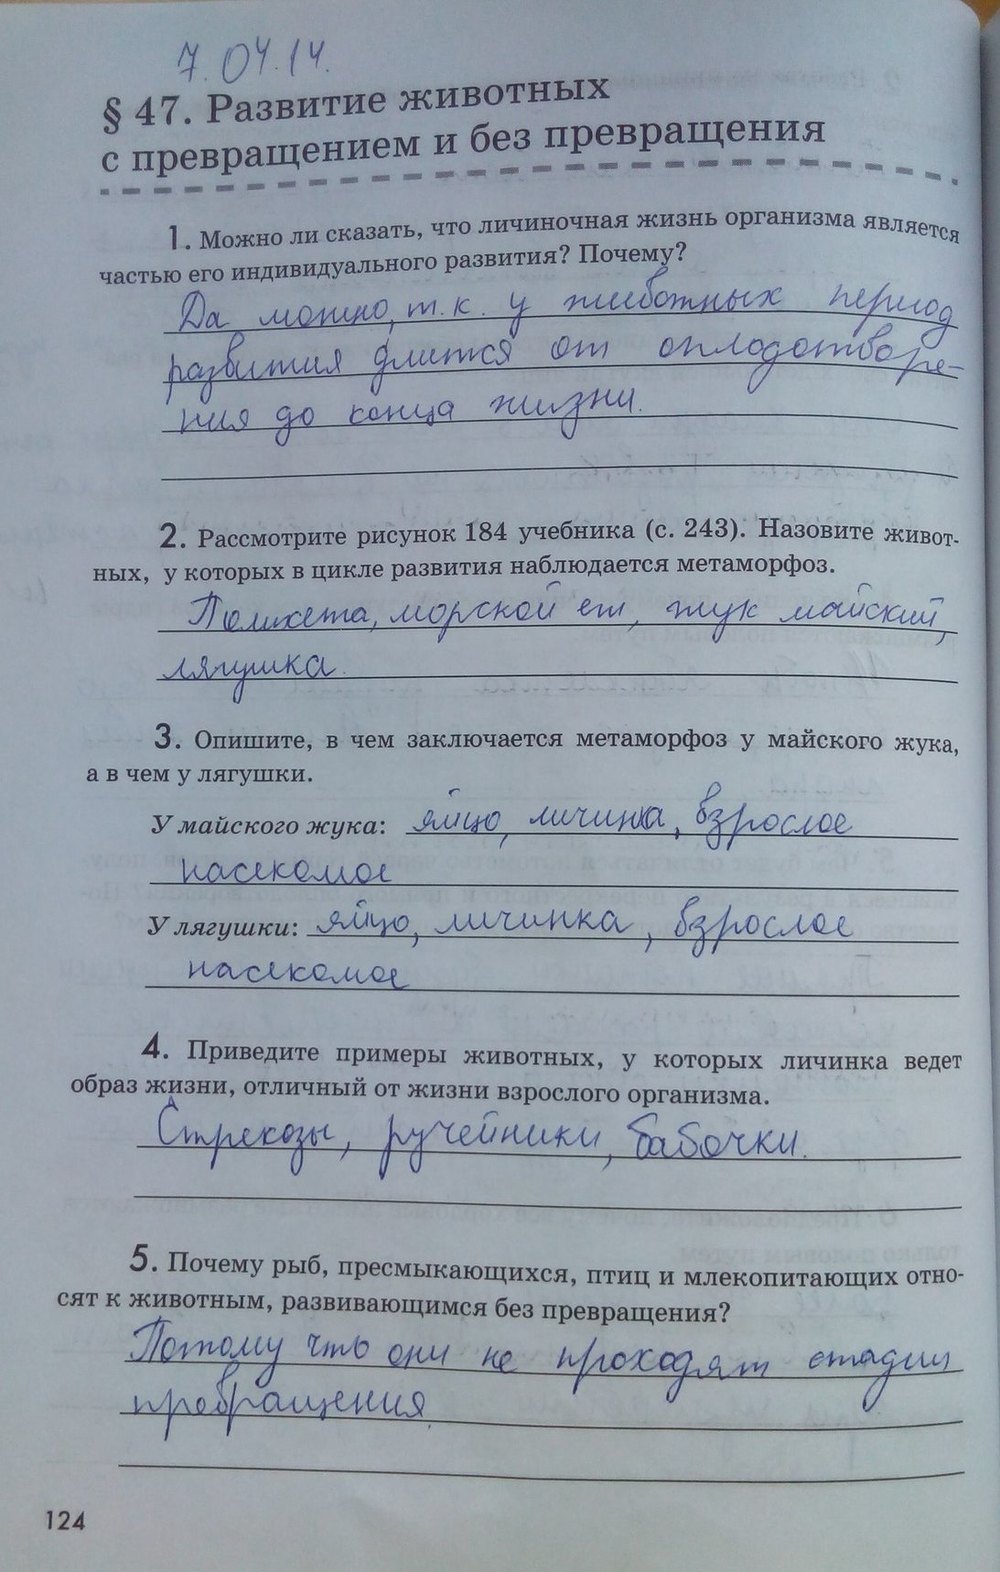 7.04.14.
§ 47. Развитие животных
с превращением и без превращения
1. Можно ли сказать, что личиночная жизнь организма является
частью его индивидуального развития? Почему?
Да можно, т.к. у животных период
развития длится от оплодотворе-
ния до конца жизни.
2. Рассмотрите рисунок 184 учебника (с. 243). Назовите живот-
ных, у которых в цикле развития наблюдается метаморфоз.
Полихета, морской еж, жук майский,
лягушка.
3. Опишите, в чем заключается метаморфоз у майского жука,
а в чем у лягушки.
У майского жука: яйцо, личинка, взрослое
насекомое
У лягушки: яйцо, личинка, взрослое
насекомое
4. Приведите примеры животных, у которых личинка ведет
образ жизни, отличный от жизни взрослого организма.
Стрекозы, ручейники, бабочки.
5. Почему рыб, пресмыкающихся, птиц и млекопитающих отно-
сят к животным, развивающимся без превращения?
Потому что они не проходят стадии
превращения
124